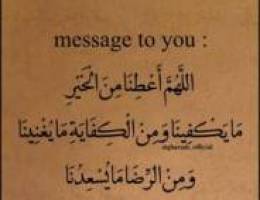 message to you :
اللَّهُمَّ أَعْطِنَا مِنَ الْخَيْرِ
مَا يَكْفِينَا وَمِنَ الْكِفَايَةِ مَا يُغْنِينَا
وَمِنَ الرِّضَا مَا يُسْعِدُنَا